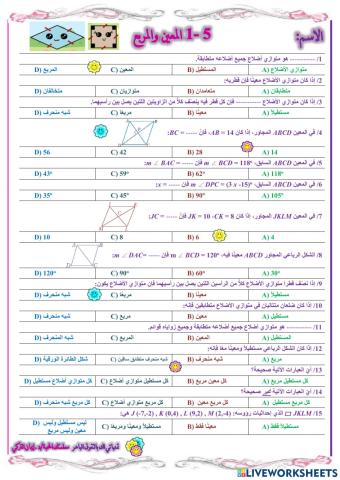 الاسم:
5-1 المعين والمربع
1/ -------- هو متوازي أضلاع جميع أضلاعه متطابقة.
A) متوازي الأضلاع B) المستطيل C) المعين D) المربع
2/ إذا كان متوازي الأضلاع معينًا فإن قطريه:
A) متطابقان B) متعامدان C) متوازيان D) متخالفان
3/ إذا نصف كل قطر فيه كلًا من الزاويتين اللتين يصل بين رأسيهما.
A) مستطيلًا B) معينًا C) مربعًا D) شبه منحرف
4/ في المعين ABCD المجاور، إذا كان AB = 14 فإن BC = -----
A) 14 B) 28 C) 42 D) 56
5/ في المعين ABCD السابق، m∠ BCD = 118° فإن m∠ BAC = -----
A) 118° B) 62° C) 59° D) 43°
6/ في المعين ABCD السابق، m∠ DPC = (3x -15)° فإن x = -----
A) 105° B) 90° C) 45° D) 35°
7/ في المعين JKLM المجاور، إذا كان CK = 8، JK = 10 فإن JC = -----
A) 4 B) 6 C) 8 D) 10
8/ الشكل الرباعي المجاور ABCD معينًا فيه، m∠ BCD = 120° فإن m∠ DAC= -----
A) 30° B) 60° C) 90° D) 120°
9/ إذا نصف قطرا متوازي الأضلاع كلًا من الرأسين اللتين يصل بين رأسيهما فإن متوازي الأضلاع يكون:
A) مستطيلًا B) معينًا C) مربعًا D) شبه منحرف
10/ إذا كان ضلعان متتاليان في متوازي الأضلاع متطابقين فإنه
A) مستطيل B) معين C) مربع D) شبه منحرف
11/ -------- هو متوازي أضلاع جميع أضلاعه متطابقة وجميع زواياه قوائم.
A) المستطيل B) المعين C) المربع D) شبه المنحرف
12/ إذا كان الشكل الرباعي مستطيلًا ومعينًا معًا فإنه:
A) مربع B) شبه منحرف C) شبه منحرف متطابق ساقين D) شكل الطائرة الورقية
13/ أيّ العبارات الآتية صحيحة؟
A) كل مستطيل مربع B) كل معين مربع C) كل مستطيل متوازي أضلاع D) كل متوازي أضلاع مستطيل
14/ أيّ العبارات الآتية غير صحيحة؟
A) كل مربع مستطيل B) كل مربع معين C) كل مربع متوازي أضلاع D) كل مربع شبه منحرف
15/ JKLM ▱ الذي إحداثيات رؤوسه: J (-7,-2) , K (0,4) , L (9,2) , M (2,-4) هي:
A) مستطيلًا فقط B) معينًا فقط C) مستطيل ومعين ومربع D) ليس مستطيل وليس معين وليس مربع
LIVEWORKSHEETS